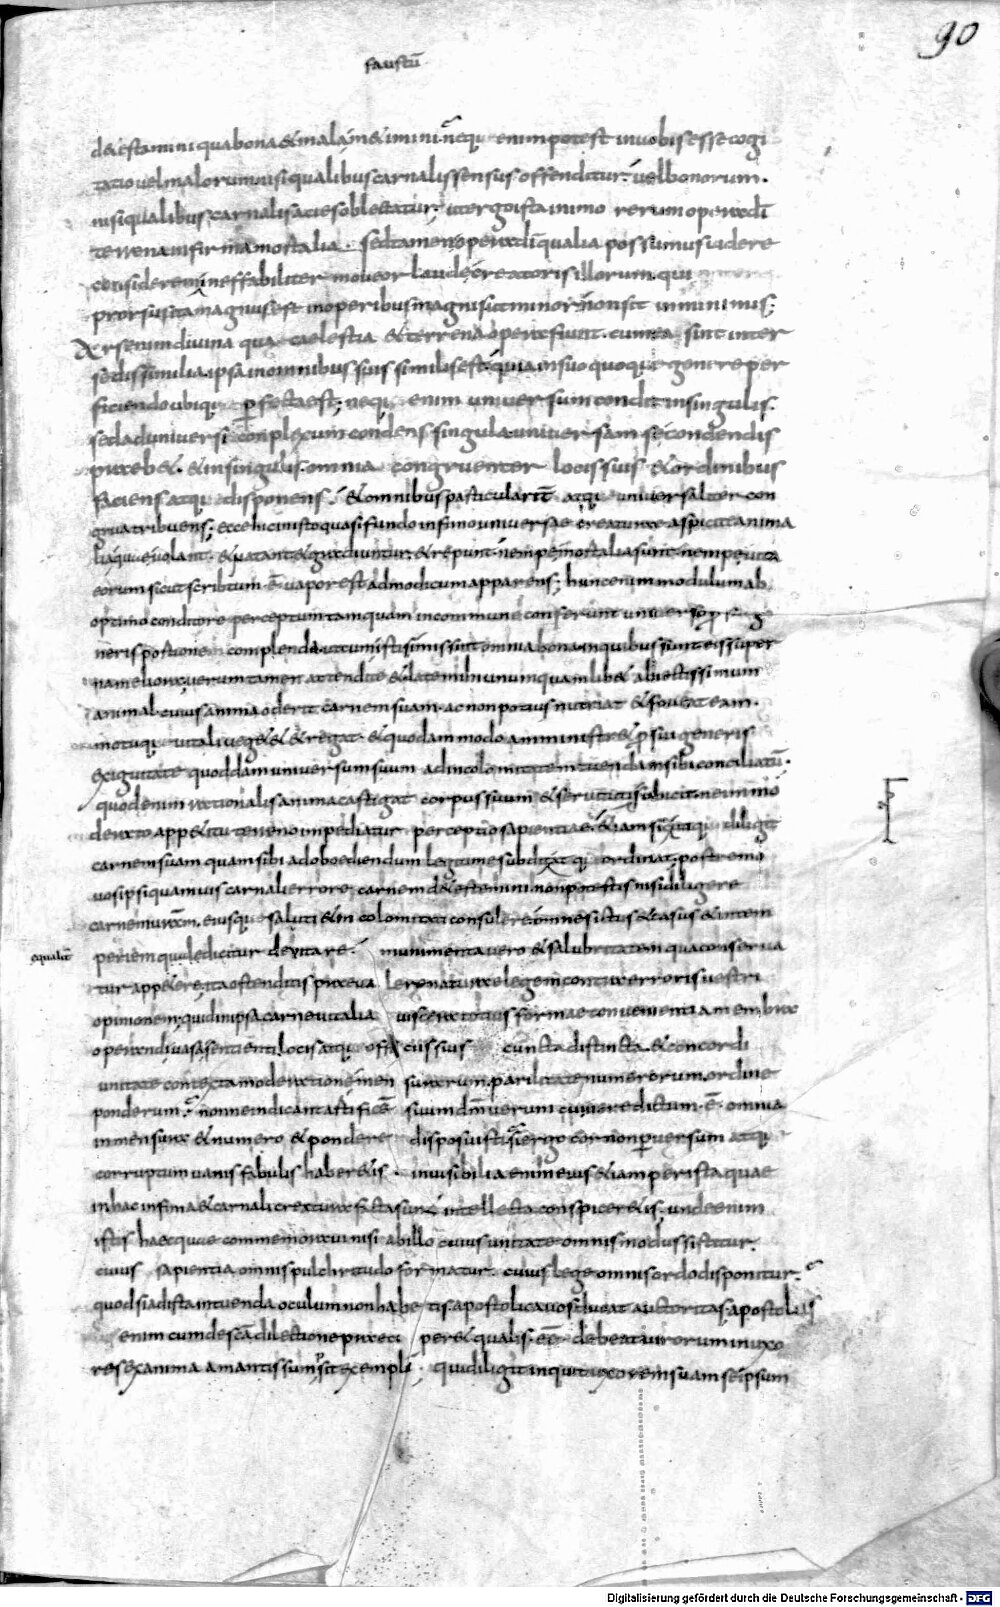 90
faustū
detestamini qua bona & mala metimini neq· enim potest in uobis esse cogi
tatio uel malorum nisi qualibus carnalis sensus offenditur· uel bonorum·
nisi qualibus carnalis acies oblectatur· ut ergo ista in imo rerum opera dī
terrena infirma mortalia· sed tamen opera dī qualia possumus uidere
considerem ineffabiliter moueor laude creatoris illorum· qui
prorsus ita magnus est in operibus magnis ut minor non sit in minimis;
Ars enim diuina qua caelestia & terrena opera fiunt· cum ea sint inter
se dissimilia· ipsa in omnibus suis similis est· quia in suo quoq· genere per
ficiendo ubiq· ꝑfecta est; neq· enim uniuersum condit in singulis·
sed ad uniuersi conplexum condens singula· uniuersam se condendis
praeb&· & in singulis omnia congruenter locis suis & ordinibus
faciens atq· disponens· & omnibus particularit̄ atq· uniuersaliter con
grua tribuens; ecce hic in isto quasi fundo infimo uniuersae creaturae aspicite anima
lia quae uolant· & natant & gradiuntur & repunt· nempe mortalia sunt· nempe uita
eorum sicut scribtum ē· uapor est ad modicum apparens; hunc enim modulum ab
optimo conditore perceptum tamquam in commune conferunt
neris portionem conplenda ut cum istis imis sint omnia bona in quibus sunt eis super
na meliora· uerum tamen attendite & date mihi unum quamlib& abiectissimum
animal· cuius anima oderit carnem suam· ac non potius nutriat & foueat eam·
motuq· uitali ueg&& & regat· & quodam modo amministr& ꝑ sui generis
exiguitate quoddam uniuersum suum ad incolomitatem tuendam sibi conciliatū·
quod enim rationalis anima castigat corpus suum & seruituti subicit· ne immo
derato app&itu terreno impediatur perceptio sapientiae· &iam sic utiq· diligit
carnem suam quam sibi ad oboediendum legitime subditat q· ordinat· postremo
uos ipsi quamuis carnali errore carnem detestemini· non potestis nisi diligere
carnem uram· eiusq· saluti & incolomitati consulere· omnes ictus & casus & intem
equalit̄
periem qua leditur deuitare· munimenta uero & salubritatem qua conserua
tur app&ere· ita ostenditis praeualere naturae legem contra erroris uestri
opinionem· quid in ipsa carne uitalia uiscera totius formae conuenientia membra
operandi uasa sentiendi· locis atq· officiis suis cuncta distincta· & concordi
unitate contexta moderatione mensurarum· parilitate numerorum· ordine
ponderum· nonne indicant artificē suum dm̄ uerum cui uere dictum· ē· omnia
in mensura & numero & pondere disposuisti; si ergo cor non ꝑuersum atq·
corruptum uanis fabulis haber&is· inuisibilia enim eius &iam per ista quae
in hac infima & carnali creatura facta sunt intellecta conspicer&is· unde enim
istis haec quae commemoraui nisi ab illo cuius unitate omnis modus sistitur·
cuius sapientia omnis pulchritudo formatur· cuius lege omnis ordo disponitur·
quod si ad ista intuenda oculum non habetis· apostolica uos ducat auctoritas· apostolus
enim cum de sc̄a dilectione praeciper& qualis· eē· debeat uirorum in uxo
res· ex anima amantis sumpsit exempli; qui diligit inquit uxorem suam seipsum
Digitalisierung gefördert durch die Deutsche Forschungsgemeinschaft - DFG